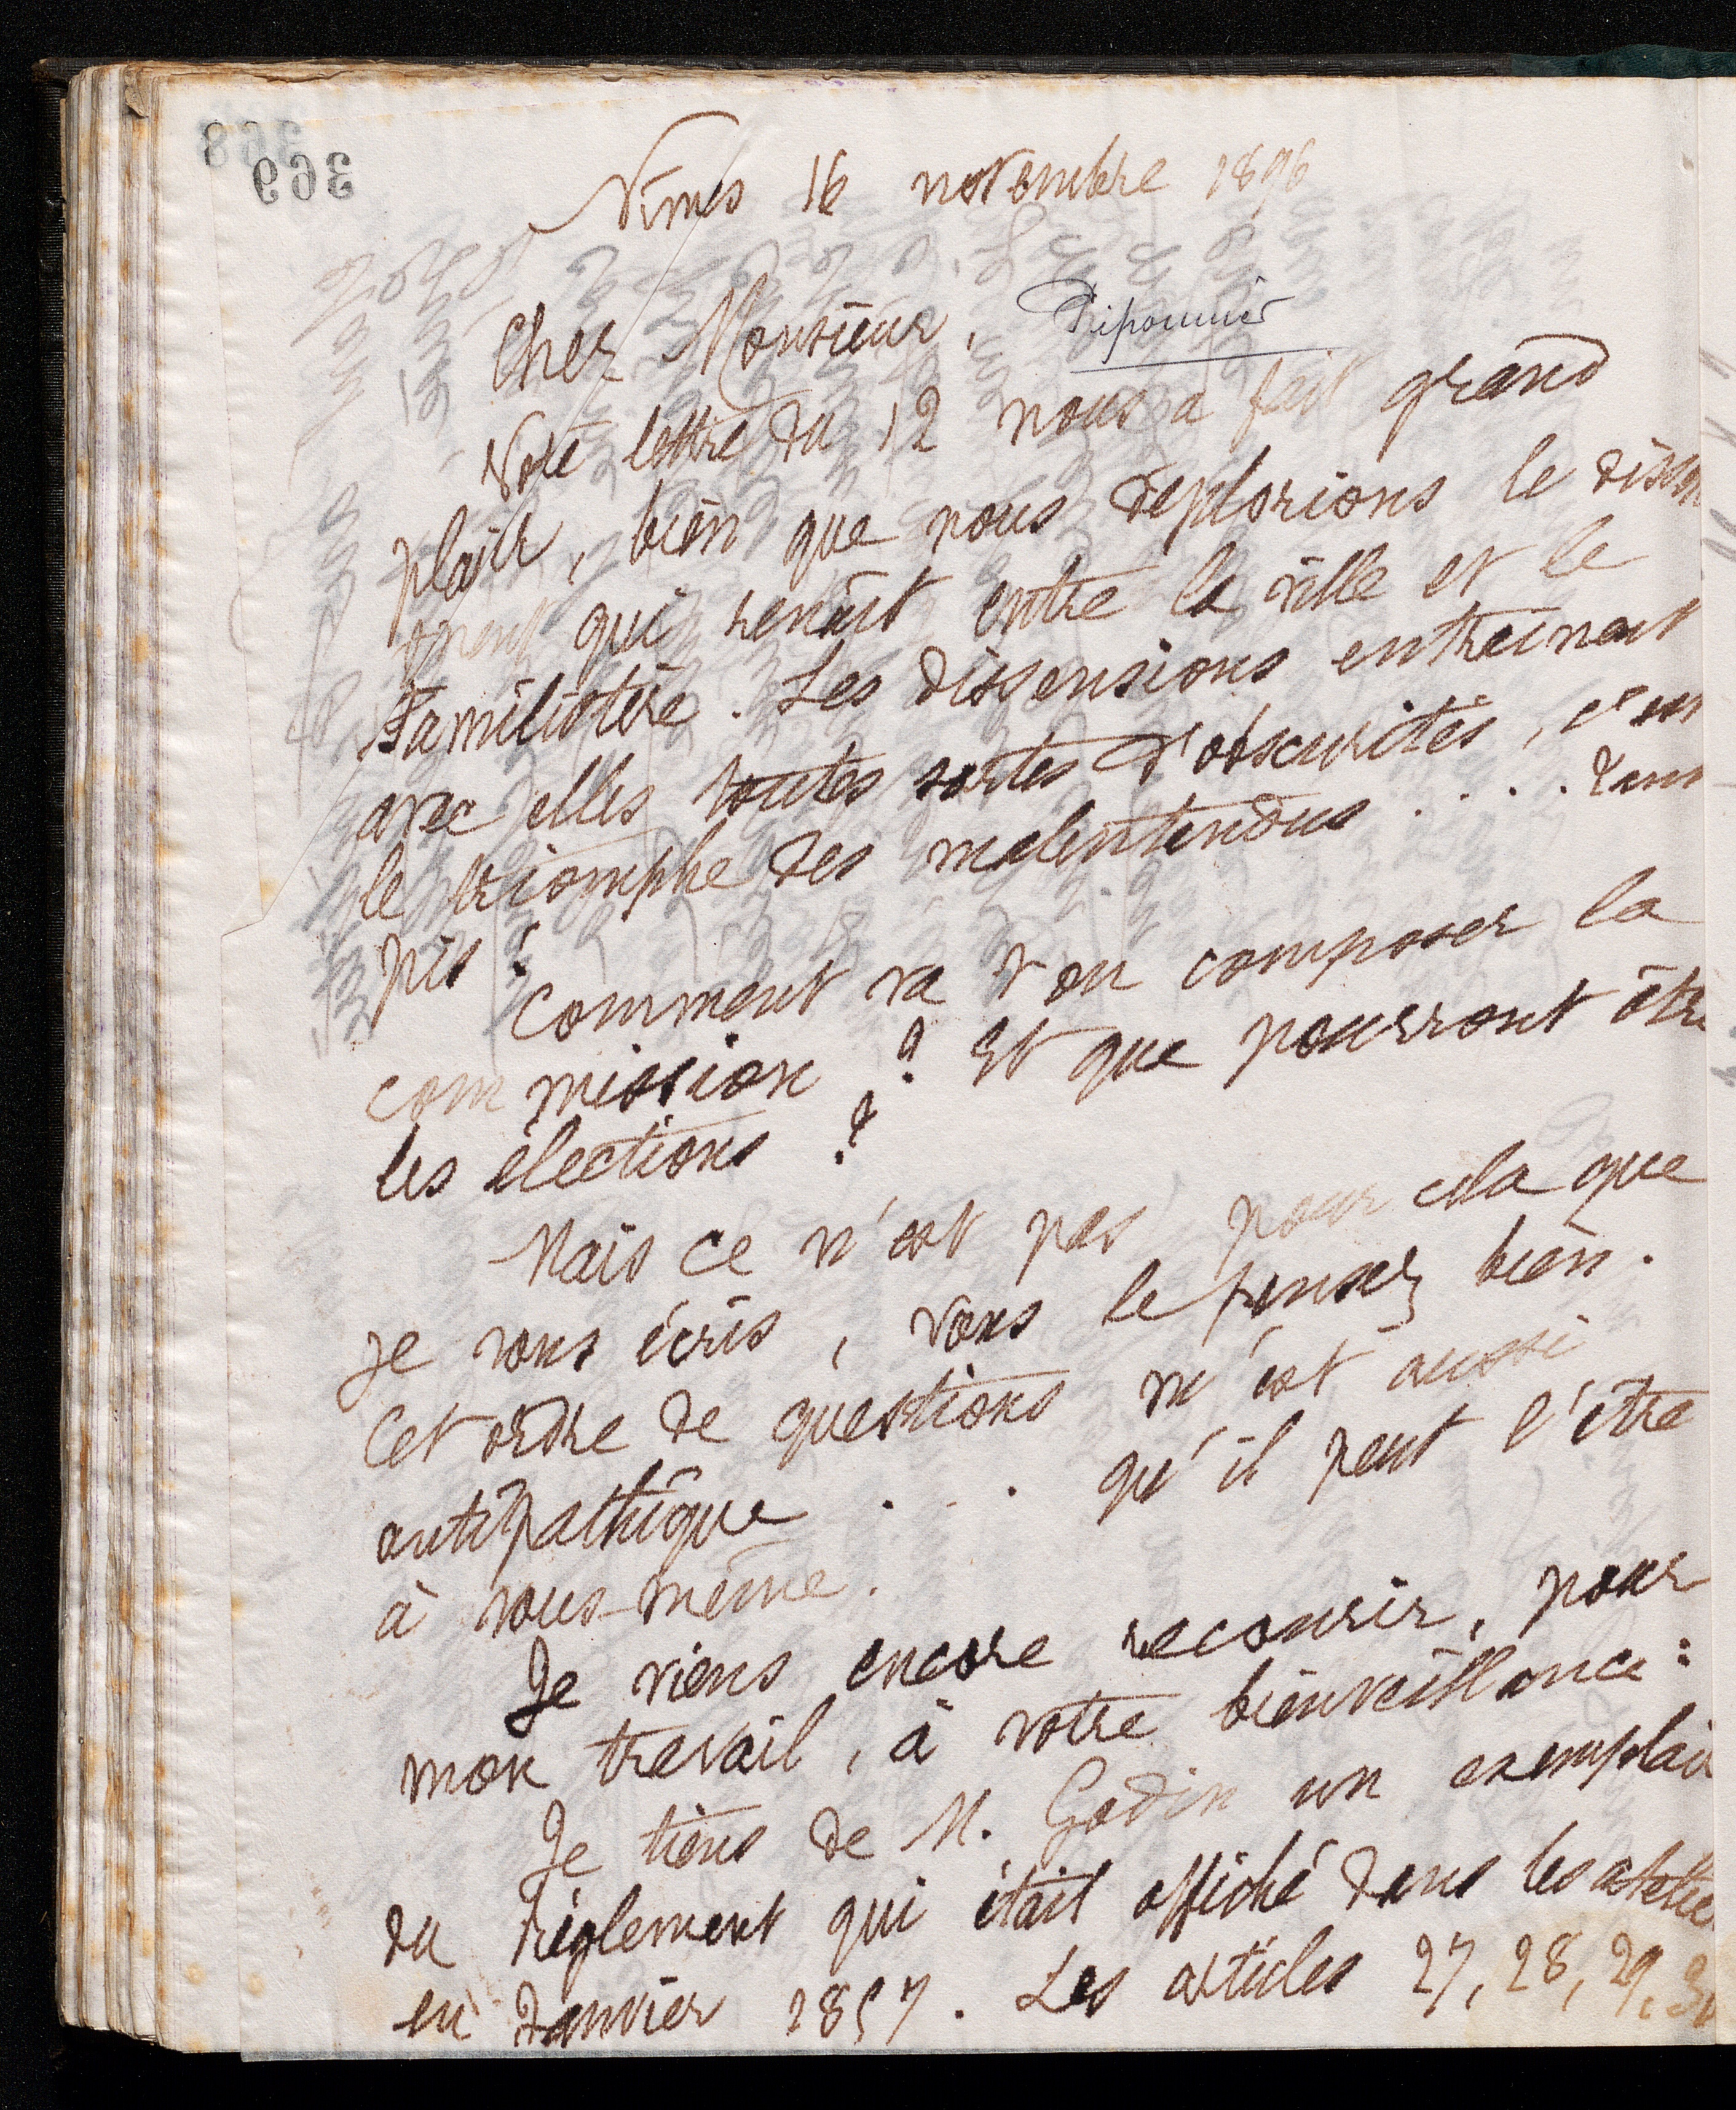 369
Nîmes 16 novembre 1896
Cher Monsieur, Pliponnier
Votre lettre du 12 nous a fait grand
plaisir, bien que nous déplorions le
qui renaît entre la ville et le
Familistère. Les dissensions entraînent
avec elles toutes sortes d'obscurités, c'est
le triomphe des malentendus . . . . Tant
pis !
Comment va t'on composer la
commission ? Et que pourront être
les élections ?
Mais ce n'est pas pour cela que
je vous écris, vous le pensez bien.
Cet ordre de questions m'est aussi
antipathique . . . qu'il peut l'être
à vous-même.
Je viens encore recourir, pour
mon travail, à votre bienveillance :
Je tiens de M. Godin un exemplai
du règlement qui était affiché dans les atelie
en Janvier 1857. Les articles 27, 28, 29, 30